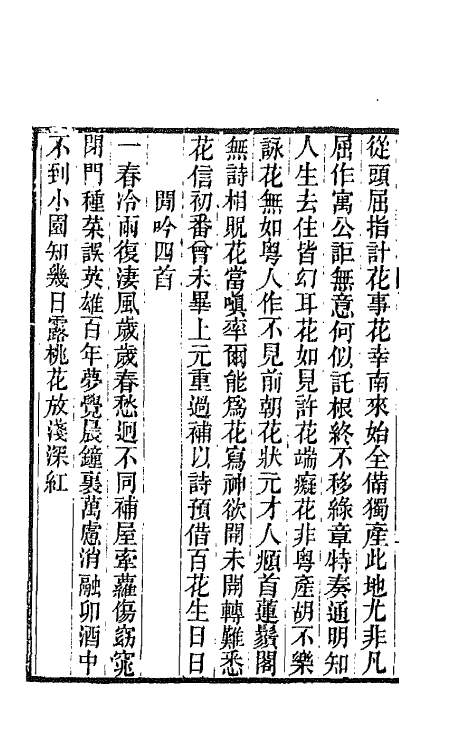 從頭屈指計花事花幸南來始全備獨產此地尤非凡
屈作寓公詎無意何似託根終不移綠章特奏通明知
人生去住皆幻耳花如見許花端癡花非粵產胡不樂
詠花無如粵人作不見前朝花狀元才人頫首蓮鬚閣
無詩相貺花當嗔率爾能爲花寫神欲開未開轉難悉
花信初番曾未畢上元重過補以詩預借百花生日日
閒吟四首
一春冷雨復淒風歲歲春愁迥不同補屋牽蘿傷窈窕
閉門種菜誤英雄百年夢覺晨鐘裏萬慮消融卯酒中
不到小園知幾日露桃花放淺深紅